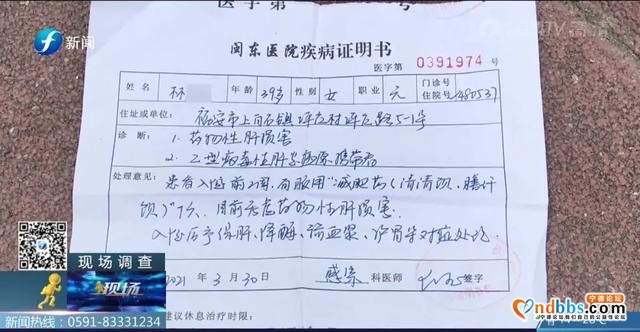 医字第
新闻
闽东医院疾病证明书
医字第 0391974 号
姓名 林 年龄 39岁 性别 女 职业 无 门诊号
住院号 1480537
住址或单位 福安市上白石镇坪左村坪左路5-1号
诊断: 1. 药物性肝损害
2. 乙型病毒性肝炎病原携带者
处理意见: 患者入院前2周,曾服用“减肥药(清清颂、
颂)” 目前考虑药物性肝损害
入院后予保肝、降酶、护胃等对症处理。
2021 年 3 月 30 日 感染 科医师 签字
建议休息治疗时限:
现场调查
现场
新闻热线:0591-83331234
宁德论坛
ndbbs.com